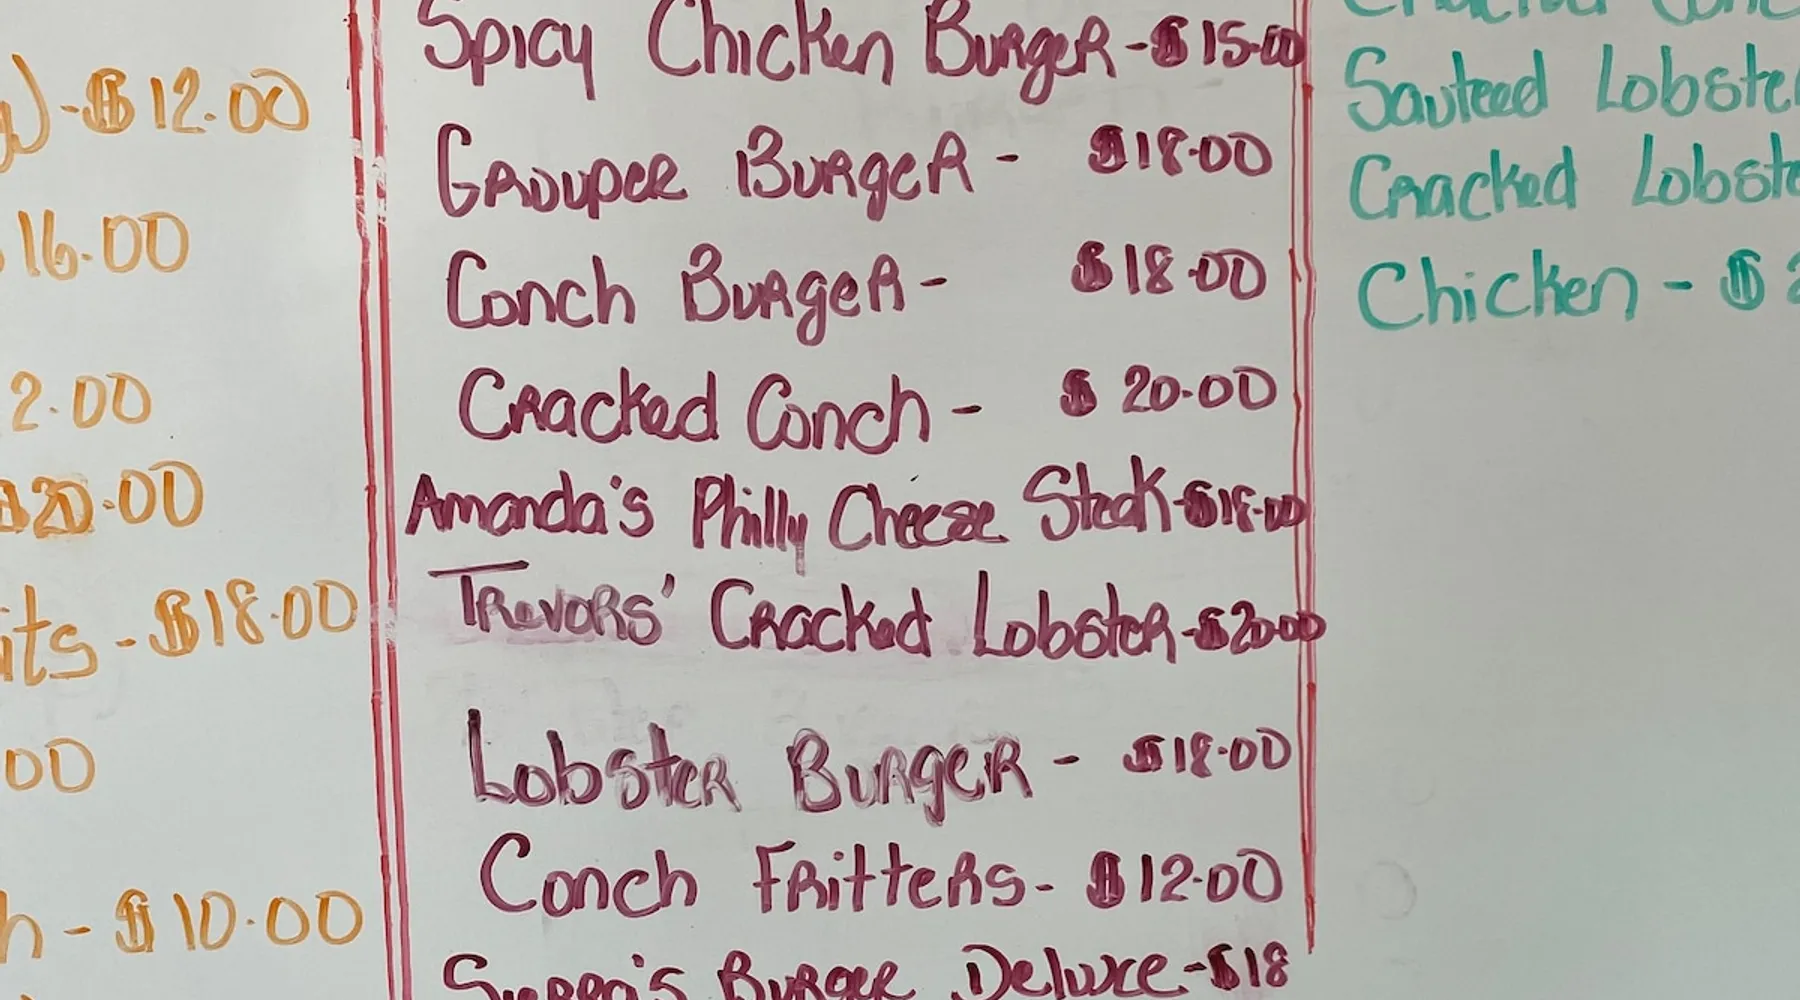 - $12.00
$16.00
2.00
$20.00
its - $18.00
00
h - $10.00
Spicy Chicken Burger - $15.00
Grouper Burger - $18.00
Conch Burger - $18.00
Cracked Conch - $20.00
Amanda's Philly Cheese Steak - $18.00
Trevors' Cracked Lobster - $20.00
Lobster Burger - $18.00
Conch Fritters - $12.00
Burger Deluxe - $18
Cracked Conc
Sauteed Lobste
Cracked Lobste
Chicken - $ 2